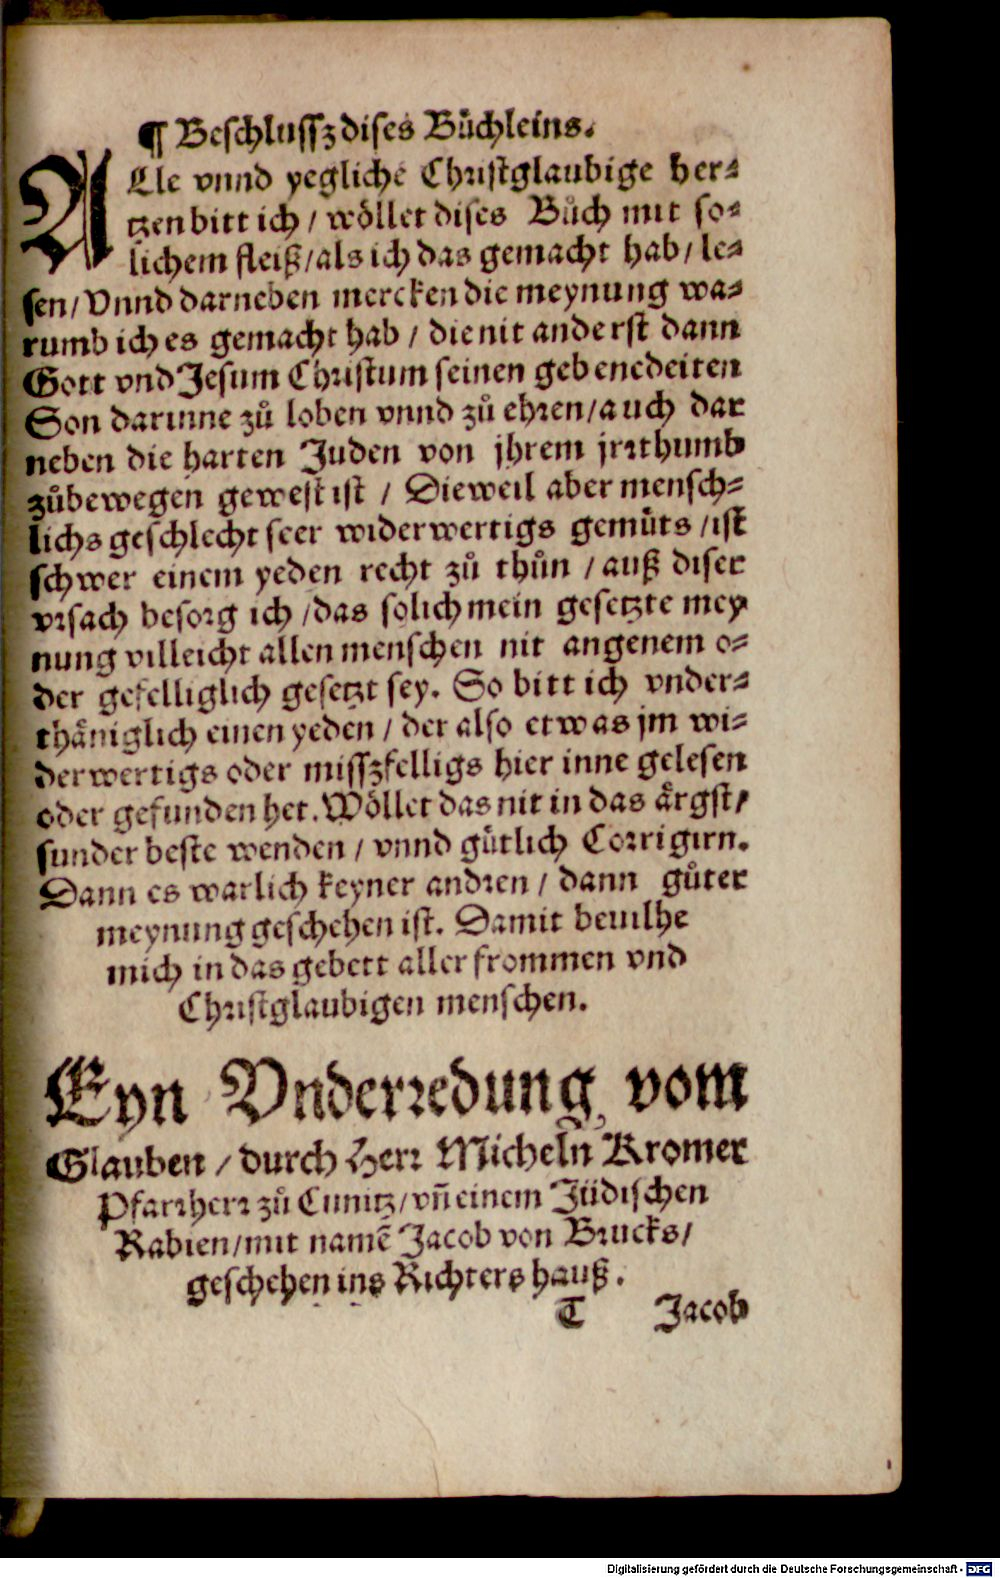 ¶ Beschlussz dises Buͤchleins.
ALle vnnd yegliche Christglaubige her⸗
tzen bitt ich / woͤllet dises Buͦch mit so⸗
lichem fleiß / als ich das gemacht hab / le⸗
sen / Vnnd darneben mercken die meynung wa⸗
rumb ich es gemacht hab / die nit anderst dann
Gott vnd Jesum Christum seinen gebenedeiten
Son darinne zuͦ loben vnnd zuͦ ehren / auch dar
neben die harten Juden von jhrem jrrthumb
zuͦbewegen gewest ist / Dieweil aber mensch⸗
lichs geschlecht seer widerwertigs gemuͤts / ist
schwer einem yeden recht zuͦ thuͦn / auß diser
vrsach besorg ich / das solich mein gesetzte mey
nung villeicht allen menschen nit angenem o⸗
der gefelliglich gesetzt sey. So bitt ich vnder⸗
thaͤniglich einen yeden / der also etwas jm wi⸗
derwertigs oder misszfelligs hier inne gelesen
oder gefunden het. Woͤllet das nit in das aͤrgst /
sunder beste wenden / vnnd guͤtlich Corrigirn.
Dann es warlich keyner andren / dann guͦter
meynung geschehen ist. Damit beuilhe
mich in das gebett aller frommen vnd
Christglaubigen menschen.
Eyn Vnderredung vom
Glauben / durch Herr Micheln Kromer
Pfarrherr zuͦ Cunitz / vñ einem Jüdischen
Rabien / mit namẽ Jacob von Brucks /
geschehen ins Richters hauß.
T Jacob
Digitalisierung gefördert durch die Deutsche Forschungsgemeinschaft - DFG